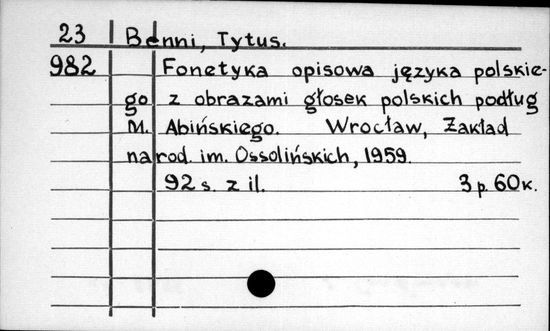 23 Benni, Tytus.
982 Fonetyka opisowa języka polskie-
go z obrazami głosek polskich podług
M. Abińskiego. Wrocław, Zakład
narod. im. Ossolińskich, 1959.
92 s. z il. 3 p. 60 к.